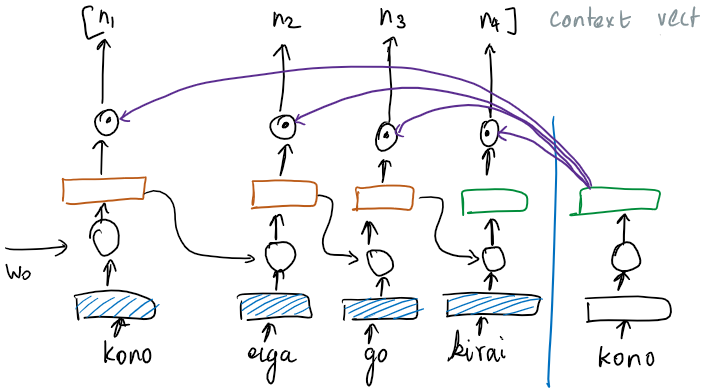 [n1 n2 n3 n4] context vect
Wo
kono eiga go kirai kono